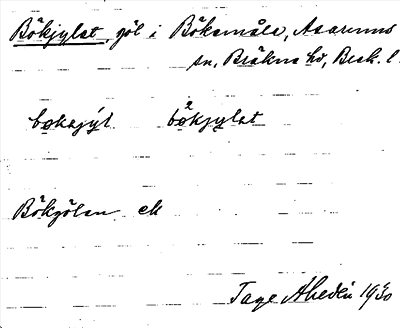 Bökjylet, göl i Böksmåla, Asarums
sn, Bräkne hd, Blek. l.
bøkajýl bø²kjylət
Bökgölen ek
Tage Ahldén 1930